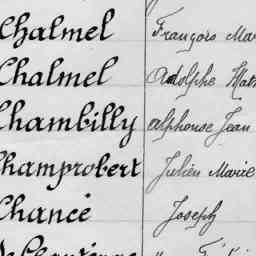 Chalmel François Mar
Chalmel Adolphe Math
Chambilly alphonse Jean
Champrobert Julien Marie
Chancé Joseph